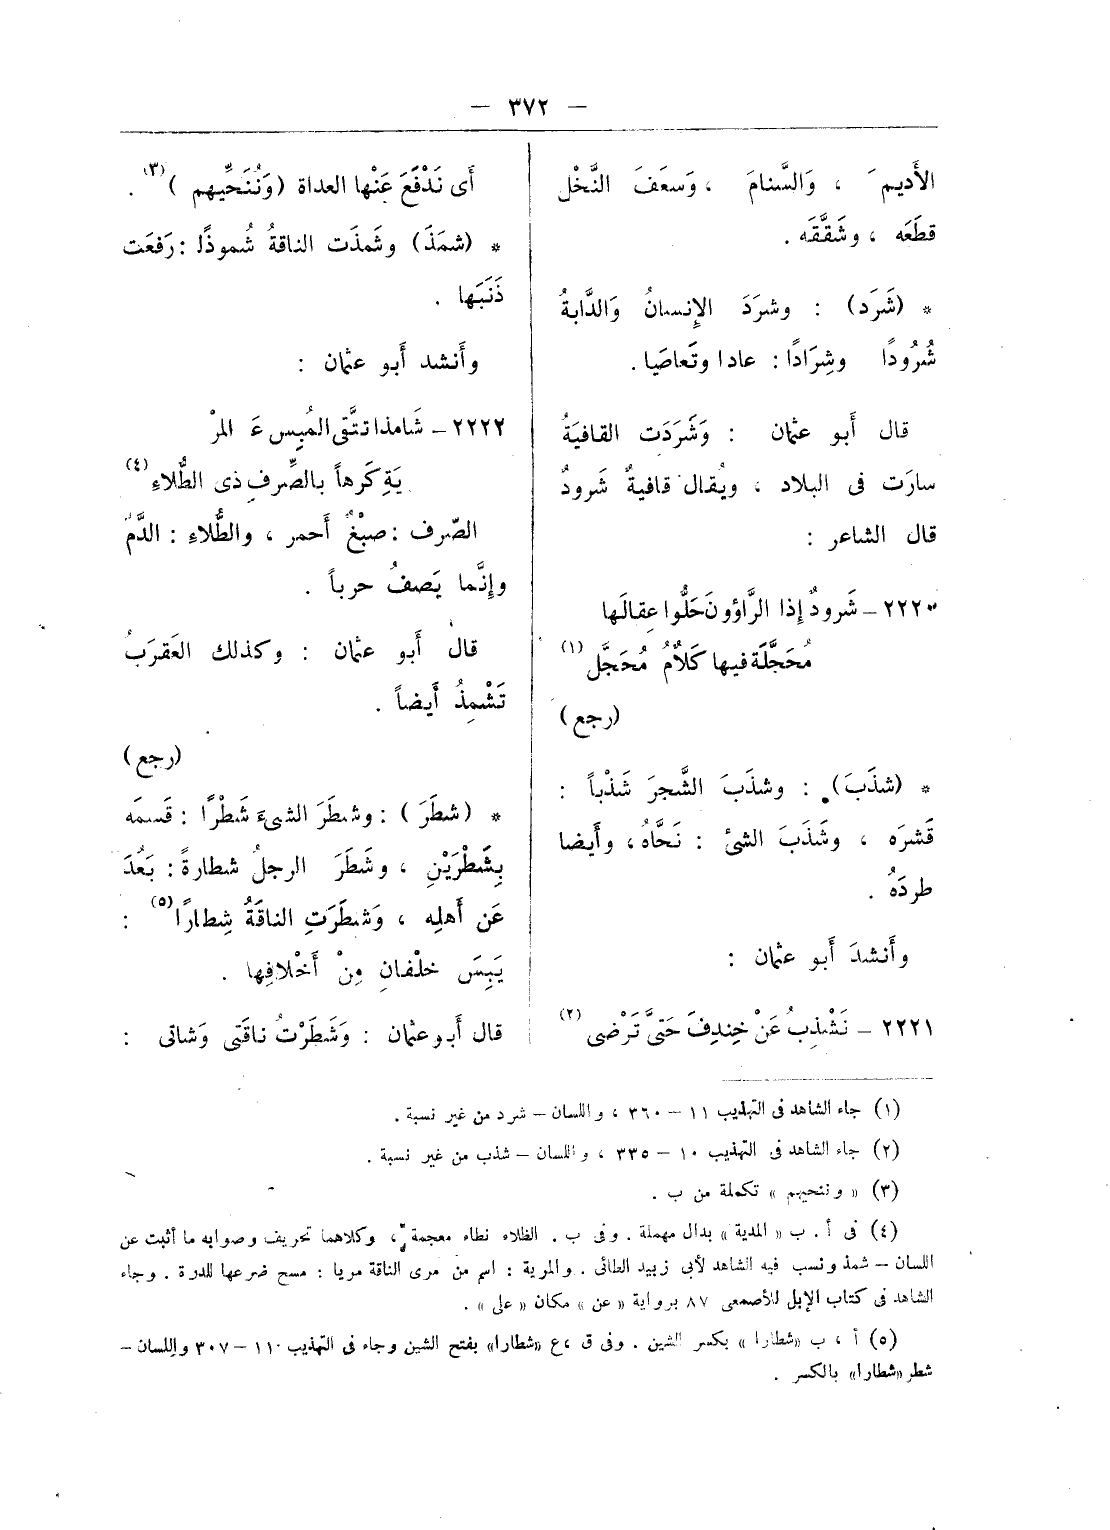 — ٣٧٢ —
الأَديمَ ، وَالسَّنامَ ، وَسعَفَ النَّخْل
قطَعَه ، وشَقَّقَه .
* (شَرَد) : وشرَدَ الإِنسانُ وَالدَّابةُ
شُرُودًا وشِرَادًا : عادا وتَعاصَيا .
قال أَبو عثمان : وَشَرَدَت القافيَةُ
سارَت فى البلاد ، ويُقال قافيةٌ شَرودٌ
قال الشاعر :
٢٢٢٠ – شَرودٌ إِذا الرَّاؤون حَلُّوا عِقالَها
مُحَجَّلَة فيها كَلاَمٌ مُحَجَّل (١)
(رجع)
* (شذَبَ) : وشذَبَ الشَّجرَ شَذْباً :
قَشرَه ، وشَذَبَ الشئَ : نَحَّاهُ ، وأَيضا
طردَهُ .
وأَنشدَ أَبو عثمان :
٢٢٢١ – نَشْذِبُ عَنْ خِندِفَ حَتىَّ تَرْضى (٢)
أَى نَدْفَعَ عَنْها العداة (وَنُنَحِّيهم) (٣) .
* (شمَذَ) وشَمذَت الناقةُ شُموذًا : رَفعَت
ذَنَبَها .
وأَنشد أَبو عثمان :
٢٢٢٢ – شَامذا تتَّقى المُبِس عَ المرْ
يَةِ كَرهاً بالصِّرفِ ذى الطُّلاءِ (٤)
الصّرف : صبْغٌ أَحمر ، والطُّلاءِ : الدَّمُ
وإِنَّما يَصفُ حرباً .
قال أَبو عثمان : وكذلك العَقرَبُ
تَشْمِذُ أَيضاً .
(رجع)
* (شطَرَ) : وشطَرَ الشىءَ شَطْرًا : قَسمَه
بِشَطْرَيْنِ ، وشَطَرَ الرجلُ شطارةً : بَعُدَ
عَن أَهلِه ، وَشطَرَتِ الناقَةُ شِطارًا (٥) :
يَبِسَ خلْفانِ مِنْ أَخْلافِها .
قال أَبو عثمان : وَشَطَرْتُ ناقَتى وَشاتى :
(١) جاء الشاهد فى التهذيب ١١ – ٣٦٠ ، واللسان – شرد من غير نسبة .
(٢) جاء الشاهد فى التهذيب ١٠ – ٣٣٥ ، واللسان – شذب من غير نسبة .
(٣) « وننحيهم » تكملة من ب .
(٤) فى أ . ب « المدية » بدال مهملة . وفى ب . الظلاء نطاء معجمة ، وكلاهما تحريف وصوابه ما أثبت عن
اللسان – شمذ ونسب فيه الشاهد لأبى زبيد الطائى . والمرية : اسم من مرى الناقة مريا : مسح ضرعها للدرة . وجاء
الشاهد فى كتاب الإبل للأصمعى ٨٧ برواية « عن » مكان « على » .
(٥) أ ، ب « شطارا » بكسر الشين . وفى ق ، ع « شطارا » بفتح الشين وجاء فى التهذيب ١١ – ٣٠٧ واللسان –
شطر « شطارا » بالكسر .